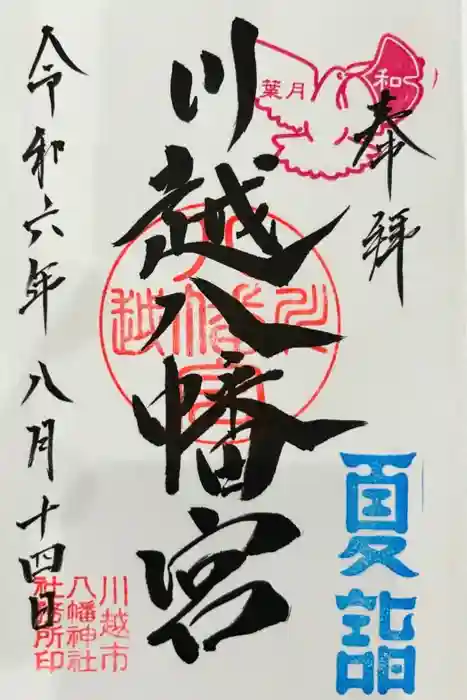 奉拝
和
葉月
夏詣
川越八幡宮
川越八幡宮
川越市
八幡神社
社務所印
令和六年八月十四日